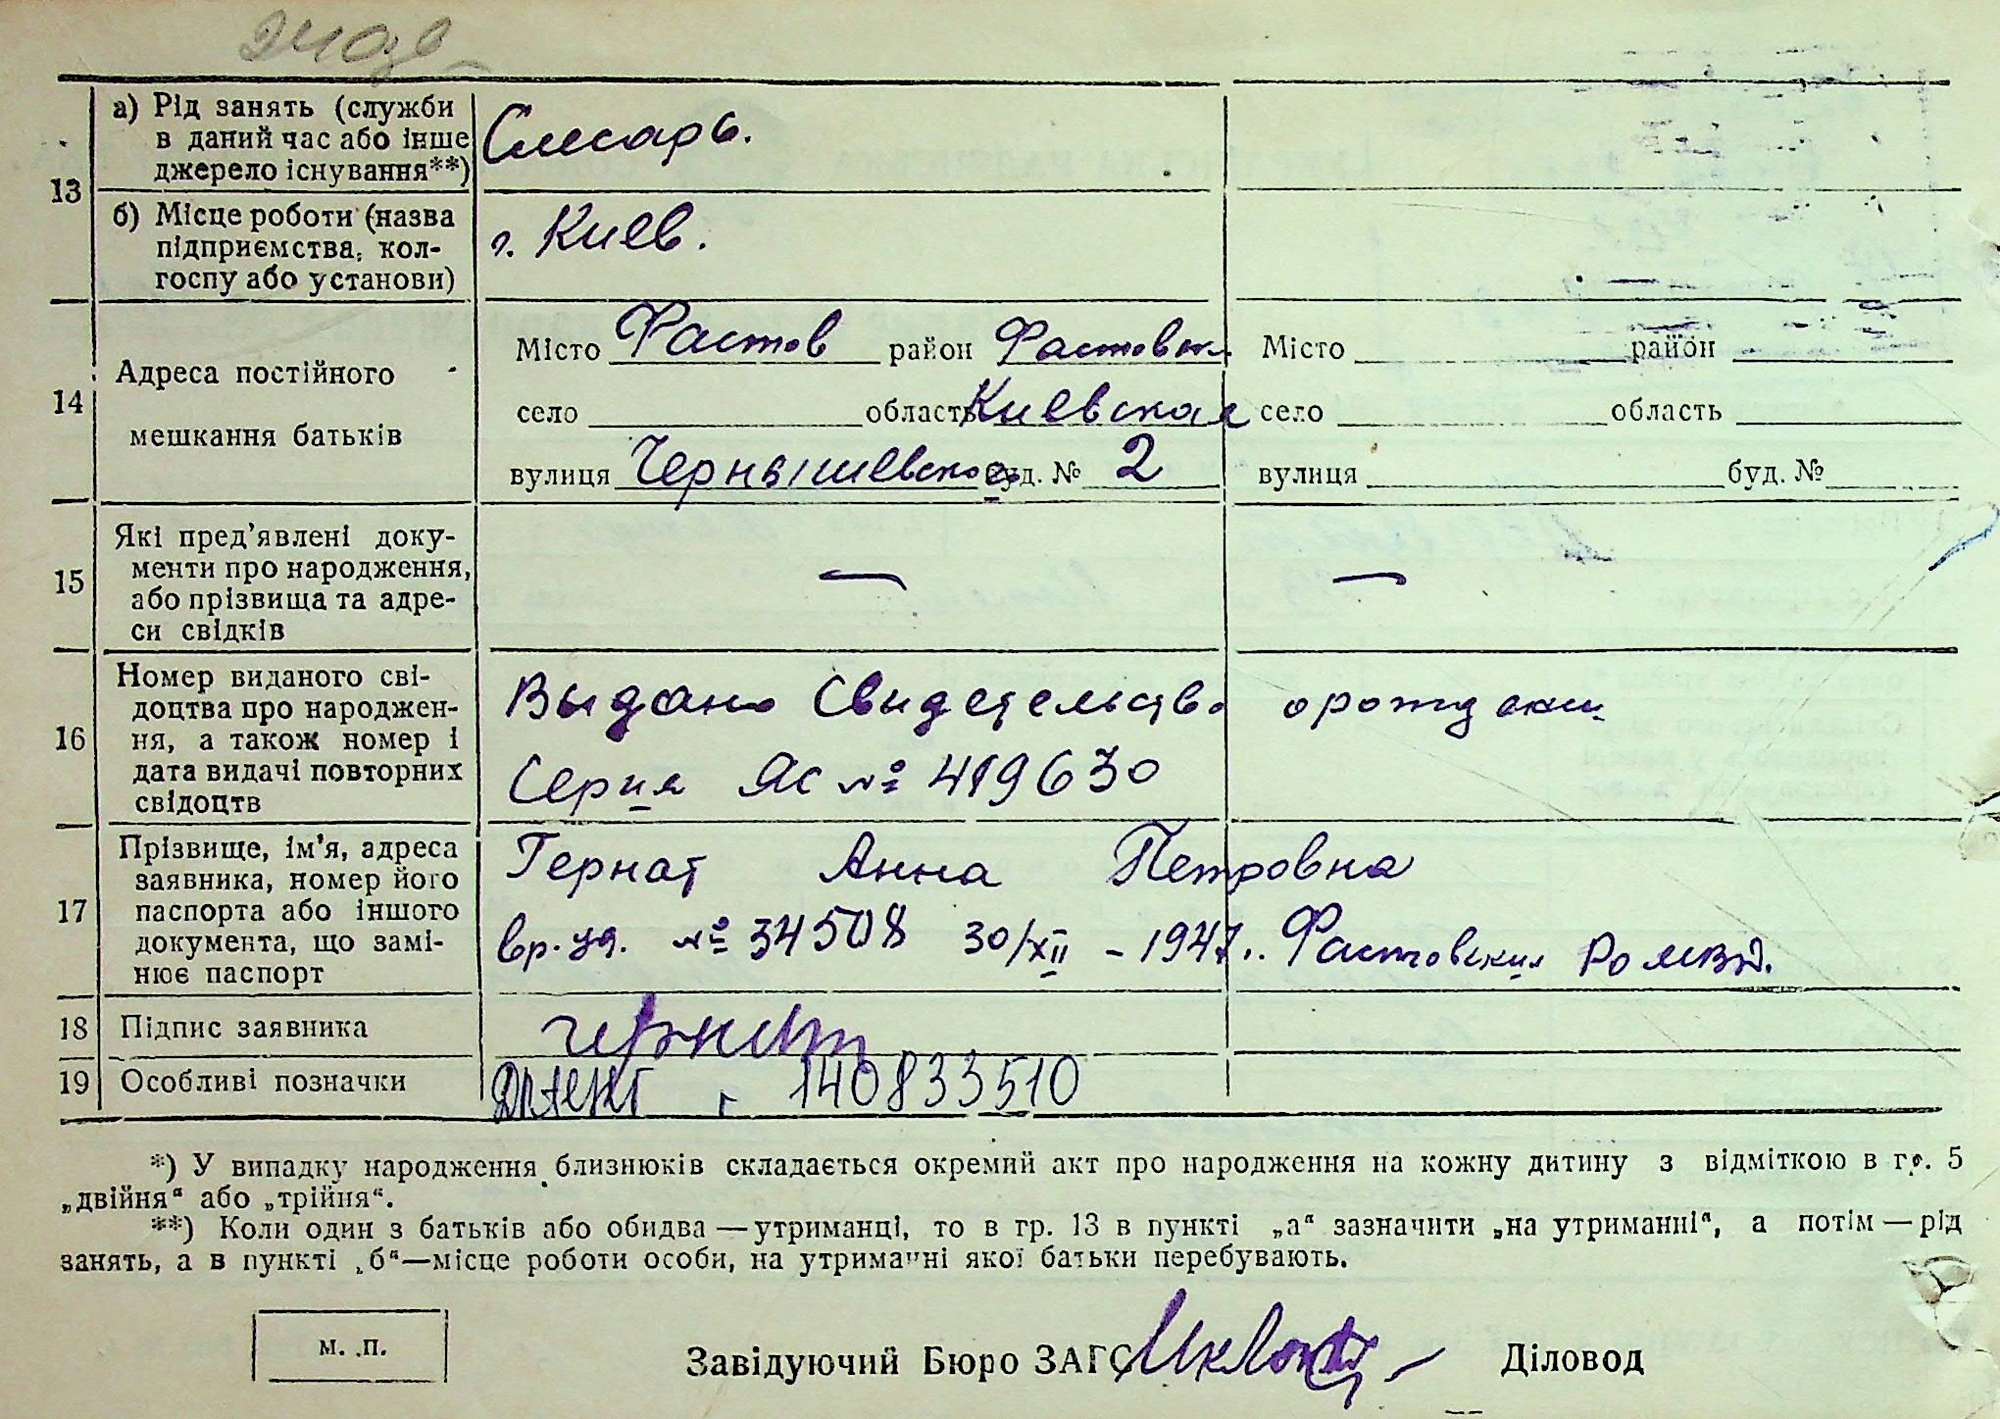 13 а) Рід занять (служби в даний час або інше джерело існування**)
Слесарь.
б) Місце роботи (назва підприємства, колгоспу або установи)
г. Киев.
14 Адреса постійного мешкання батьків
Місто Фастов район Фастовск. Місто район
село область Киевская село область
вулиця Чернышевского буд. № 2 вулиця буд. №
15 Які пред'явлені документи про народження, або прізвища та адреси свідків
— —
16 Номер виданого свідоцтва про народження, а також номер і дата видачі повторних свідоцтв
Выдано Свидетельство о рождении
Серия ЯС № 419630
17 Прізвище, ім'я, адреса заявника, номер його паспорта або іншого документа, що замінює паспорт
Гернат Анна Петровна
вр. уд. № 34508 30/XII - 1947г. Фастовским РО МВД.
18 Підпис заявника
гернат
19 Особливі позначки
140833510
*) У випадку народження близнюків складається окремий акт про народження на кожну дитину з відміткою в гр. 5
„двійня“ або „трійня“.
**) Коли один з батьків або обидва — утриманці, то в гр. 13 в пункті „а“ зазначити „на утриманні“, а потім — рід
занять, а в пункті „б“—місце роботи особи, на утриманні якої батьки перебувають.
м. п.
Завідуючий Бюро ЗАГС Діловод